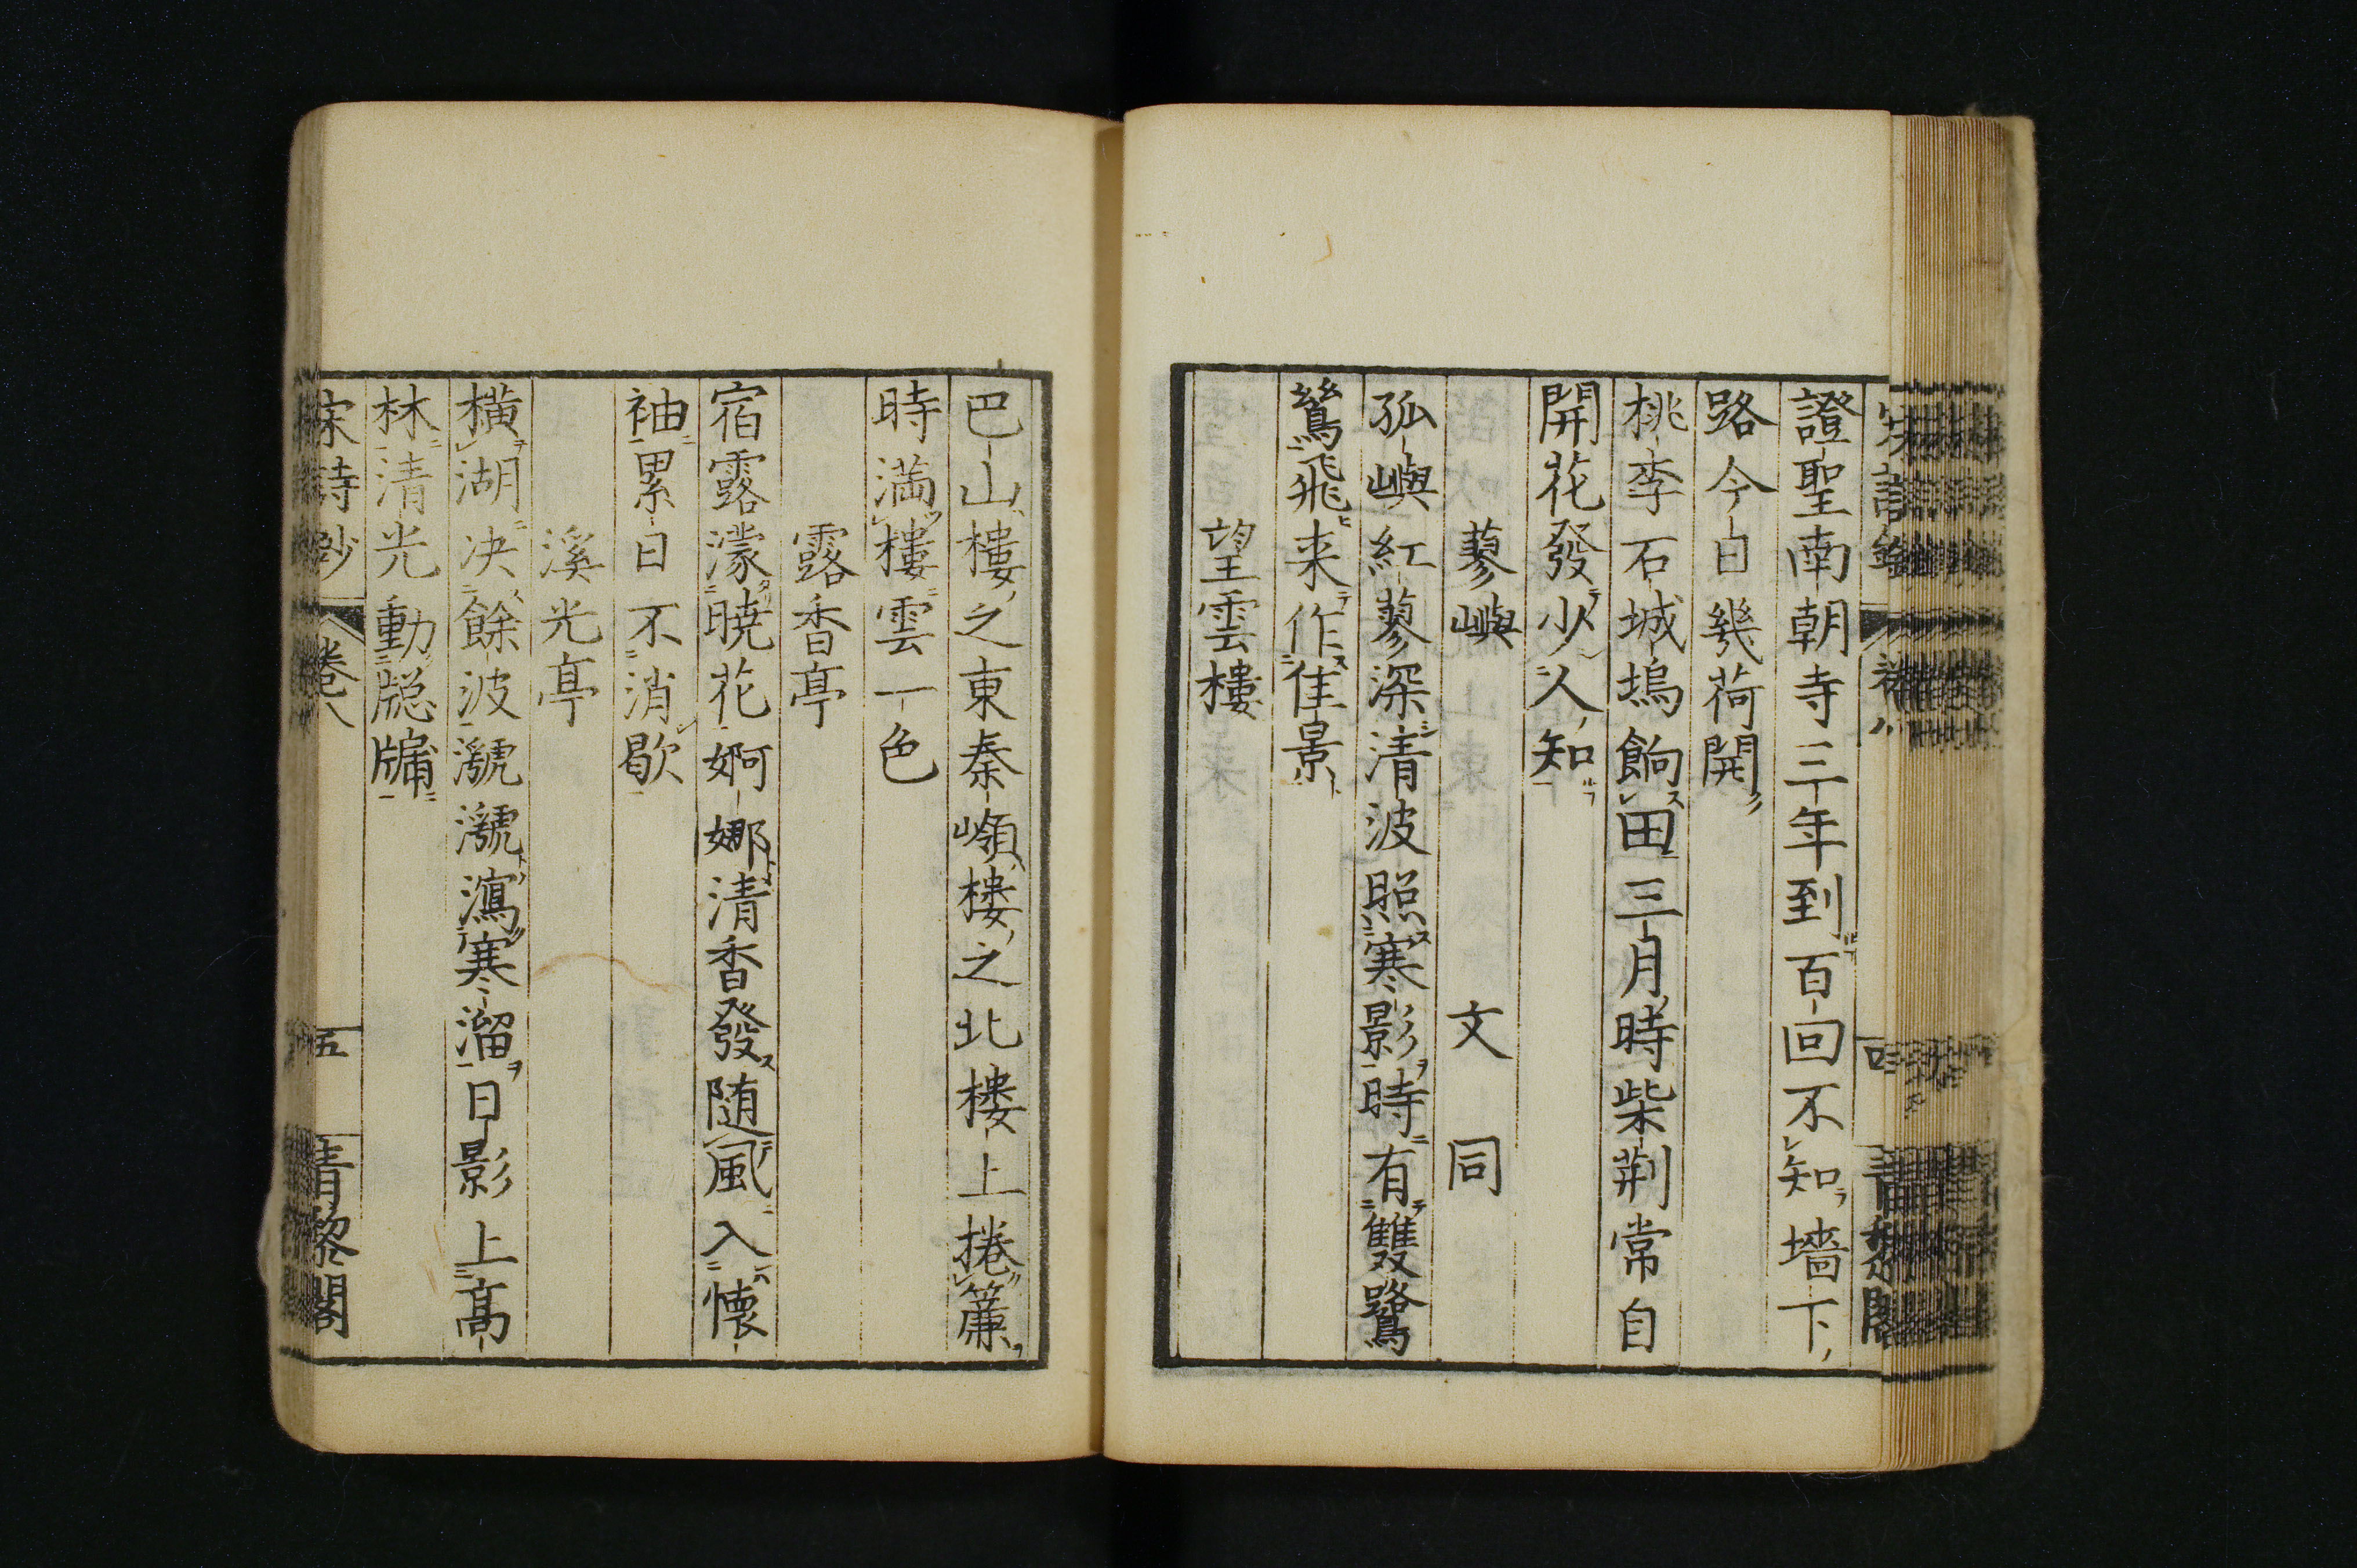 證聖南朝寺三年到百回不知墻下
路今日幾荷開
桃李石城塢餉田三月時柴荆常自
開花發少人知
蓼嶼 文同
孤嶼紅蓼深清波照寒影時有雙鷺
鷥飛来作佳景
望雲樓
巴山樓之東秦嶺樓之北樓上捲簾
時満樓雲一色
露香亭
宿露濛暁花婀娜清香發随風入懐
袖累日不消歇
溪光亭
横湖决餘波瀧瀧瀉寒溜日影上高
林清光動牎牖
宋詩鈔 卷八 五 青黎閣